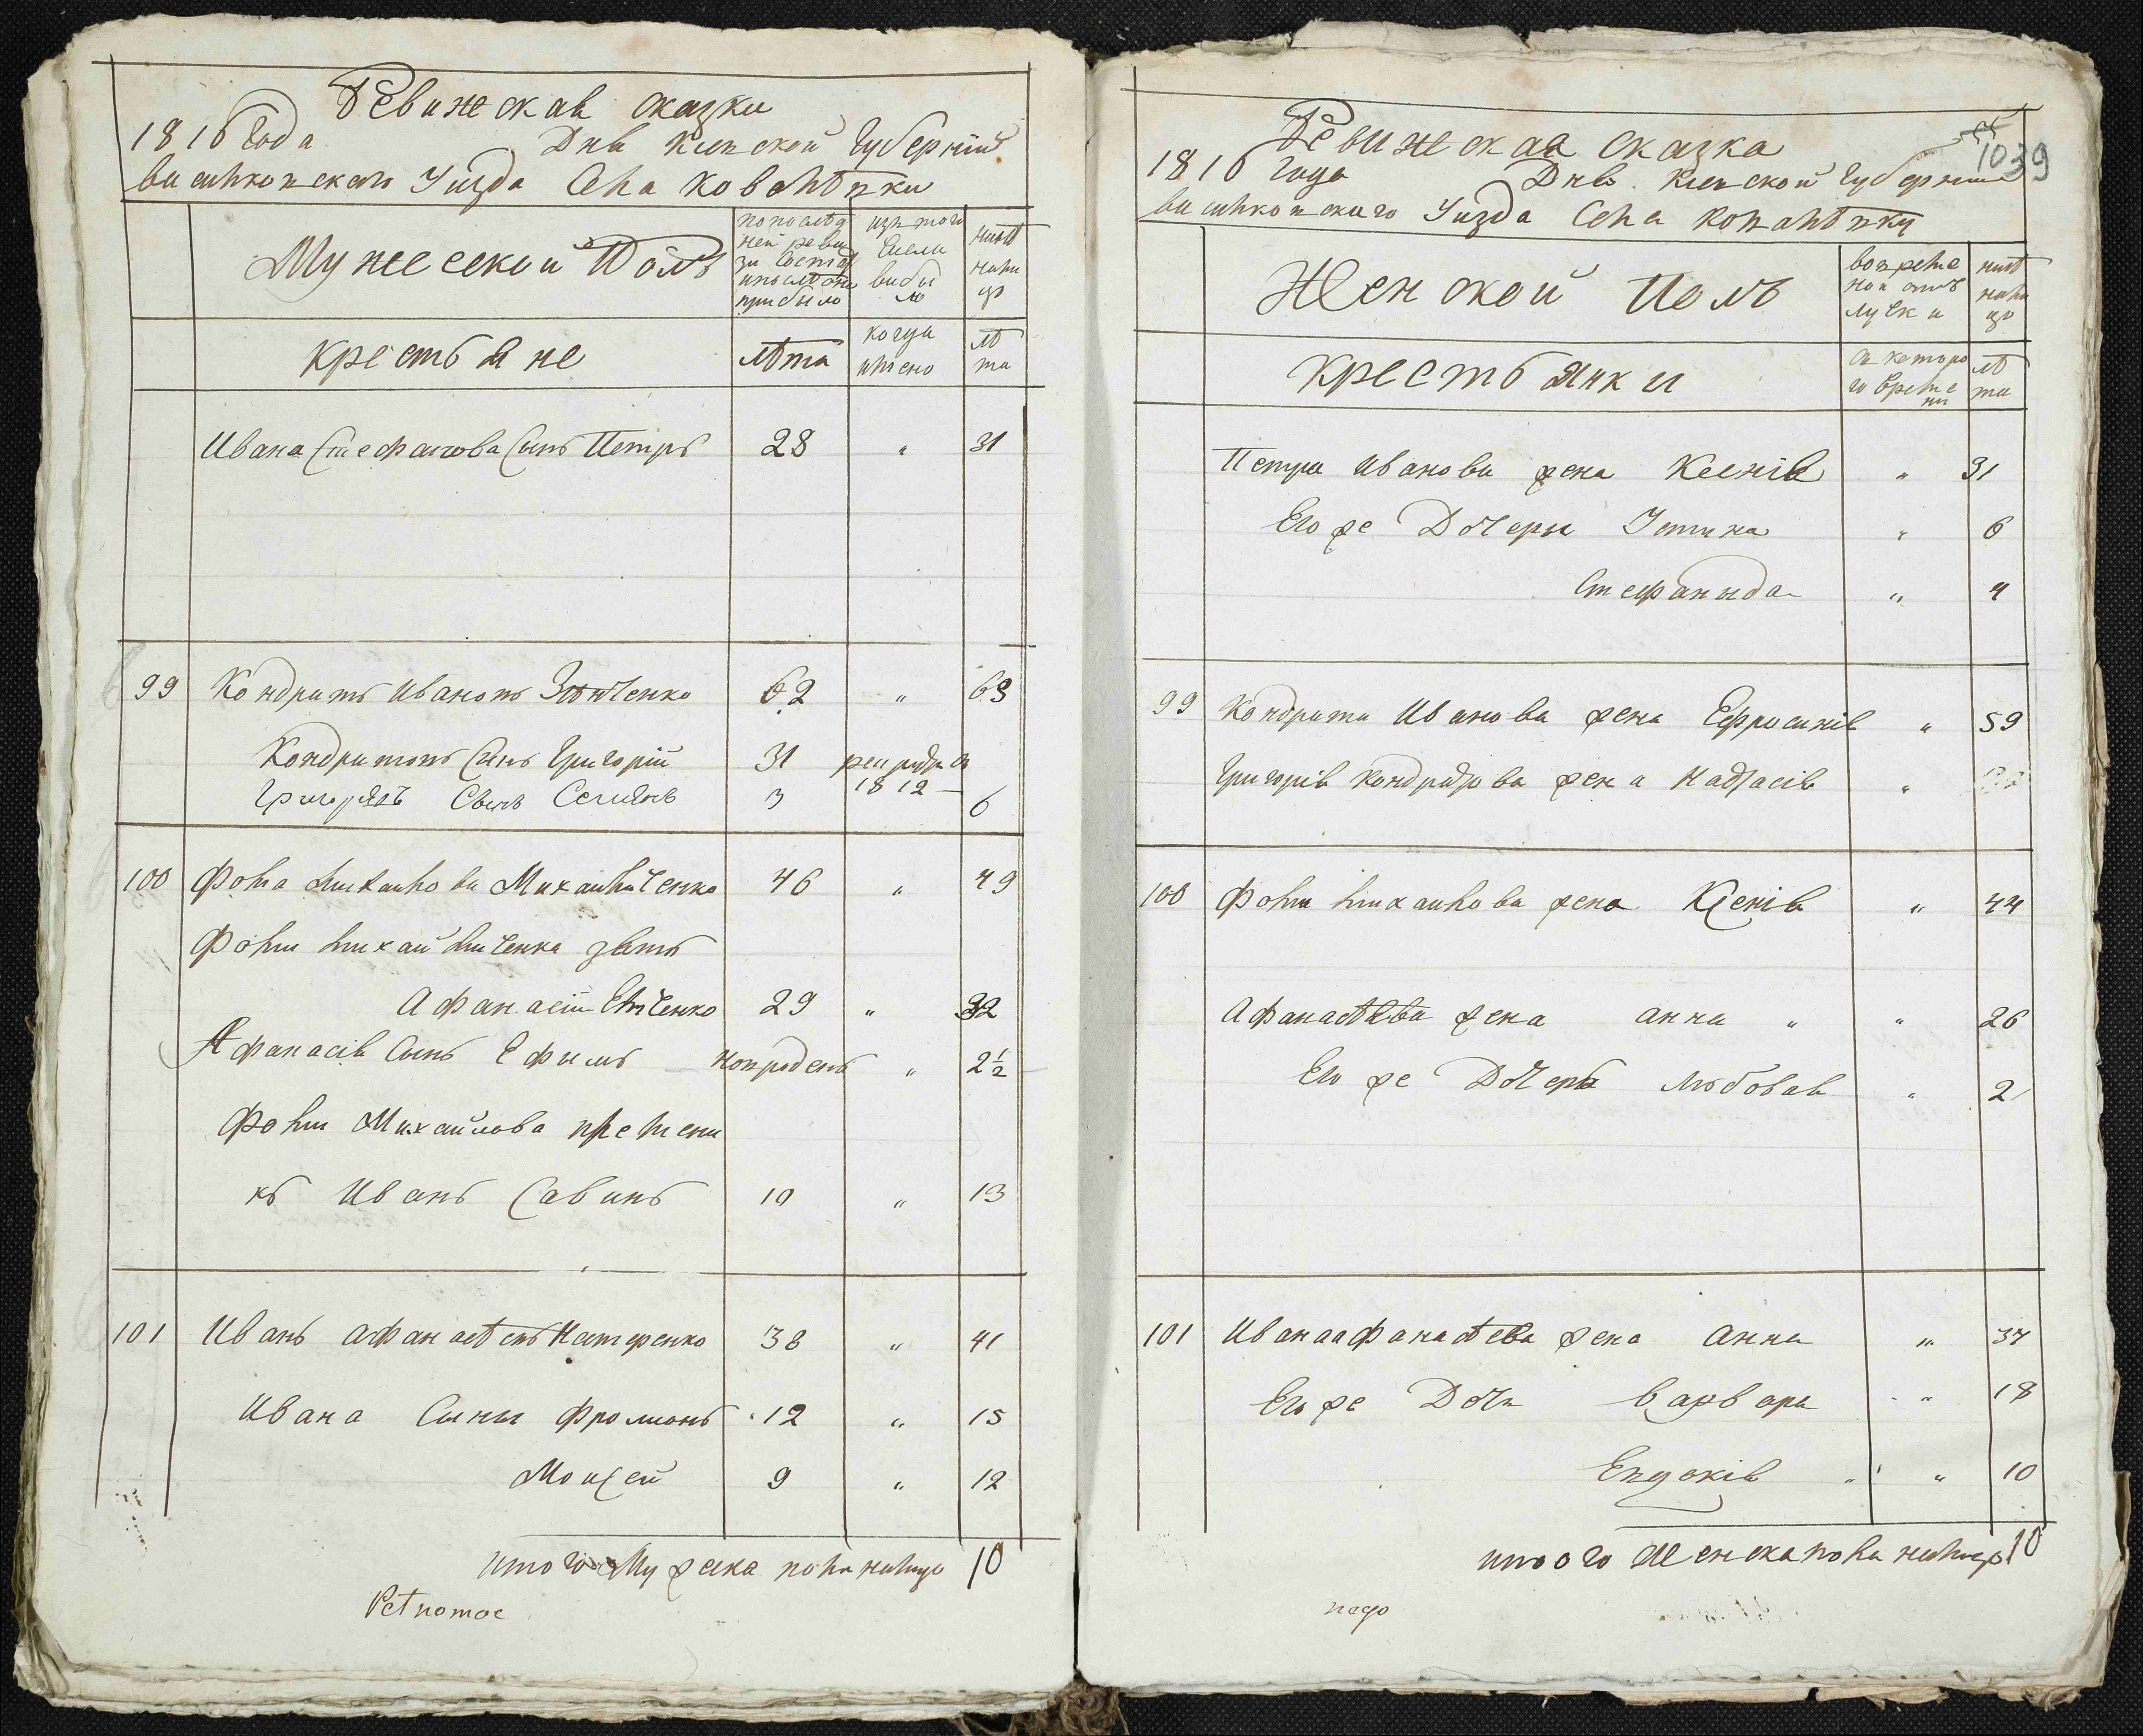 Ревижская сказки
1816 года Дня Киевской Губерніи
васильковского Уизда Села Ковалѣвки
Мужеской Полъ
по послѣд
ней реви
зіи состоя
и послѣ оно
прибыло
изъ того
числа
выбы
ло
нинѣ
на ли
цо
крестьяне
лѣта
когда
имено
лѣ
та
Ивана Стефанова Синъ Петръ 28 " 31
99 Кондратъ Ивановъ Зѣнченко 62 " 65
Кондратовъ Синъ Григорій 31 рекрутъ въ
1812
Григорiевъ Сынъ Семіонъ 3 6
100 Фома михайлова Михайличенко 46 " 49
Фоми михайличенка зять
Афанасій Емченко 29 " 32
Афанасія Сынъ Ефимъ новрожденъ " 2½
Фоми Михайлова племени
къ Иванъ Савинъ 10 " 13
101 Иванъ афанасѣевъ Нестеренко 38 " 41
Ивана Сыны Фролионъ 12 " 15
Моисей 9 " 12
итого Мужеска пола налицо 10
1039
Ревижская сказка
1816 года Дня Киевской Губерніи
васильковскаго Уизда Села Ковалѣвки
Женской Полъ
во време
ной отъ
лучки
нинѣ
на ли
цо
Крестьянки
съ которо
го време
ни
лѣ
та
Петра Иванова жена Ксенія " 31
Его же Дочеры Устина " 6
Стефанида " 4
99 Кондрата Иванова жена Ефросинія " 59
Григорія Кондратова жена Настасія "
100 Фоми михайлова жена Ксенія " 44
Афанасѣева жена анна " " 26
Его же Дочерь Любовая " 2
101 Ивана афанасѣева жена Анна " 37
Его же Дочь Варвара " 18
Евдокія " " 10
итого Женска пола налицо 10